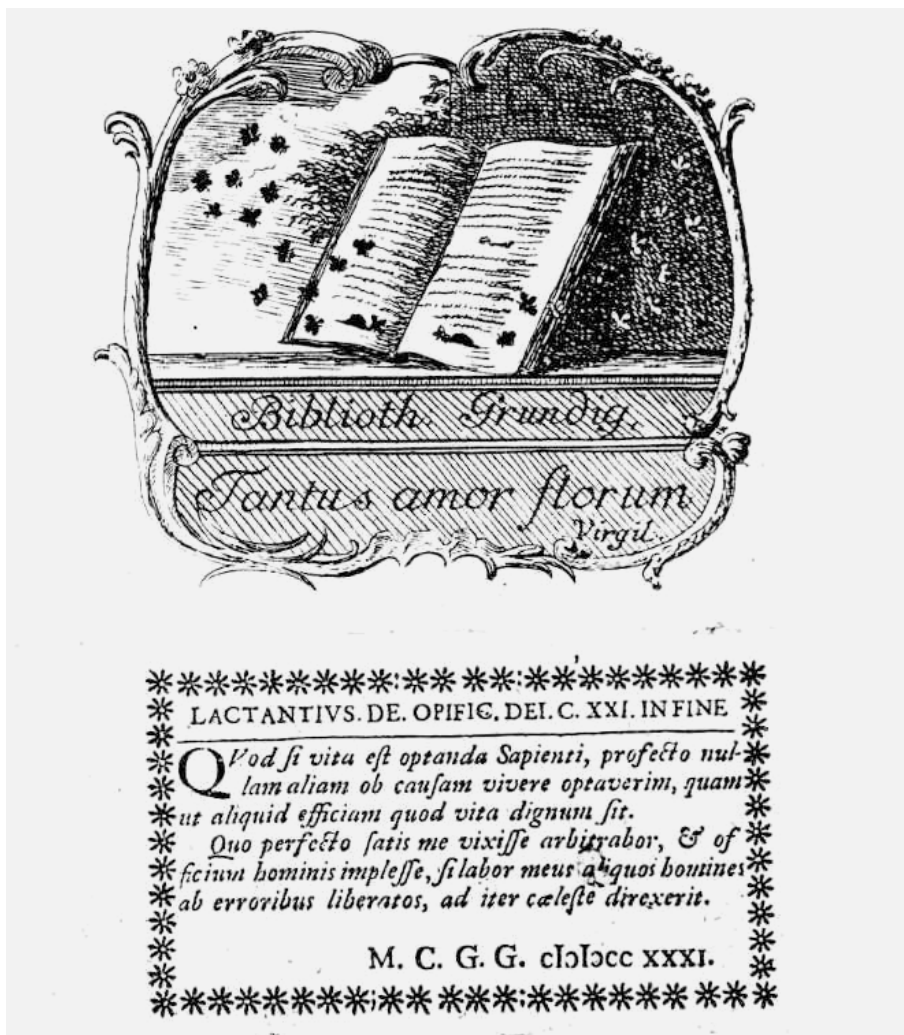 Biblioth. Grundig.
Tantus amor florum
Virgil.
LACTANTIVS. DE. OPIFIC. DEI. C. XXI. IN FINE
QVod ſi vita eſt optanda Sapienti, profecto nul-
lam aliam ob cauſam vivere optaverim, quam
ut aliquid efficiam quod vita dignum ſit.
Quo perfecto ſatis me vixiſſe arbitrabor, & of
ficium hominis impleſſe, ſi labor meus aliquos homines
ab erroribus liberatos, ad iter cæleſte direxerit.
M. C. G. G. cIɔIɔcc XXXI.